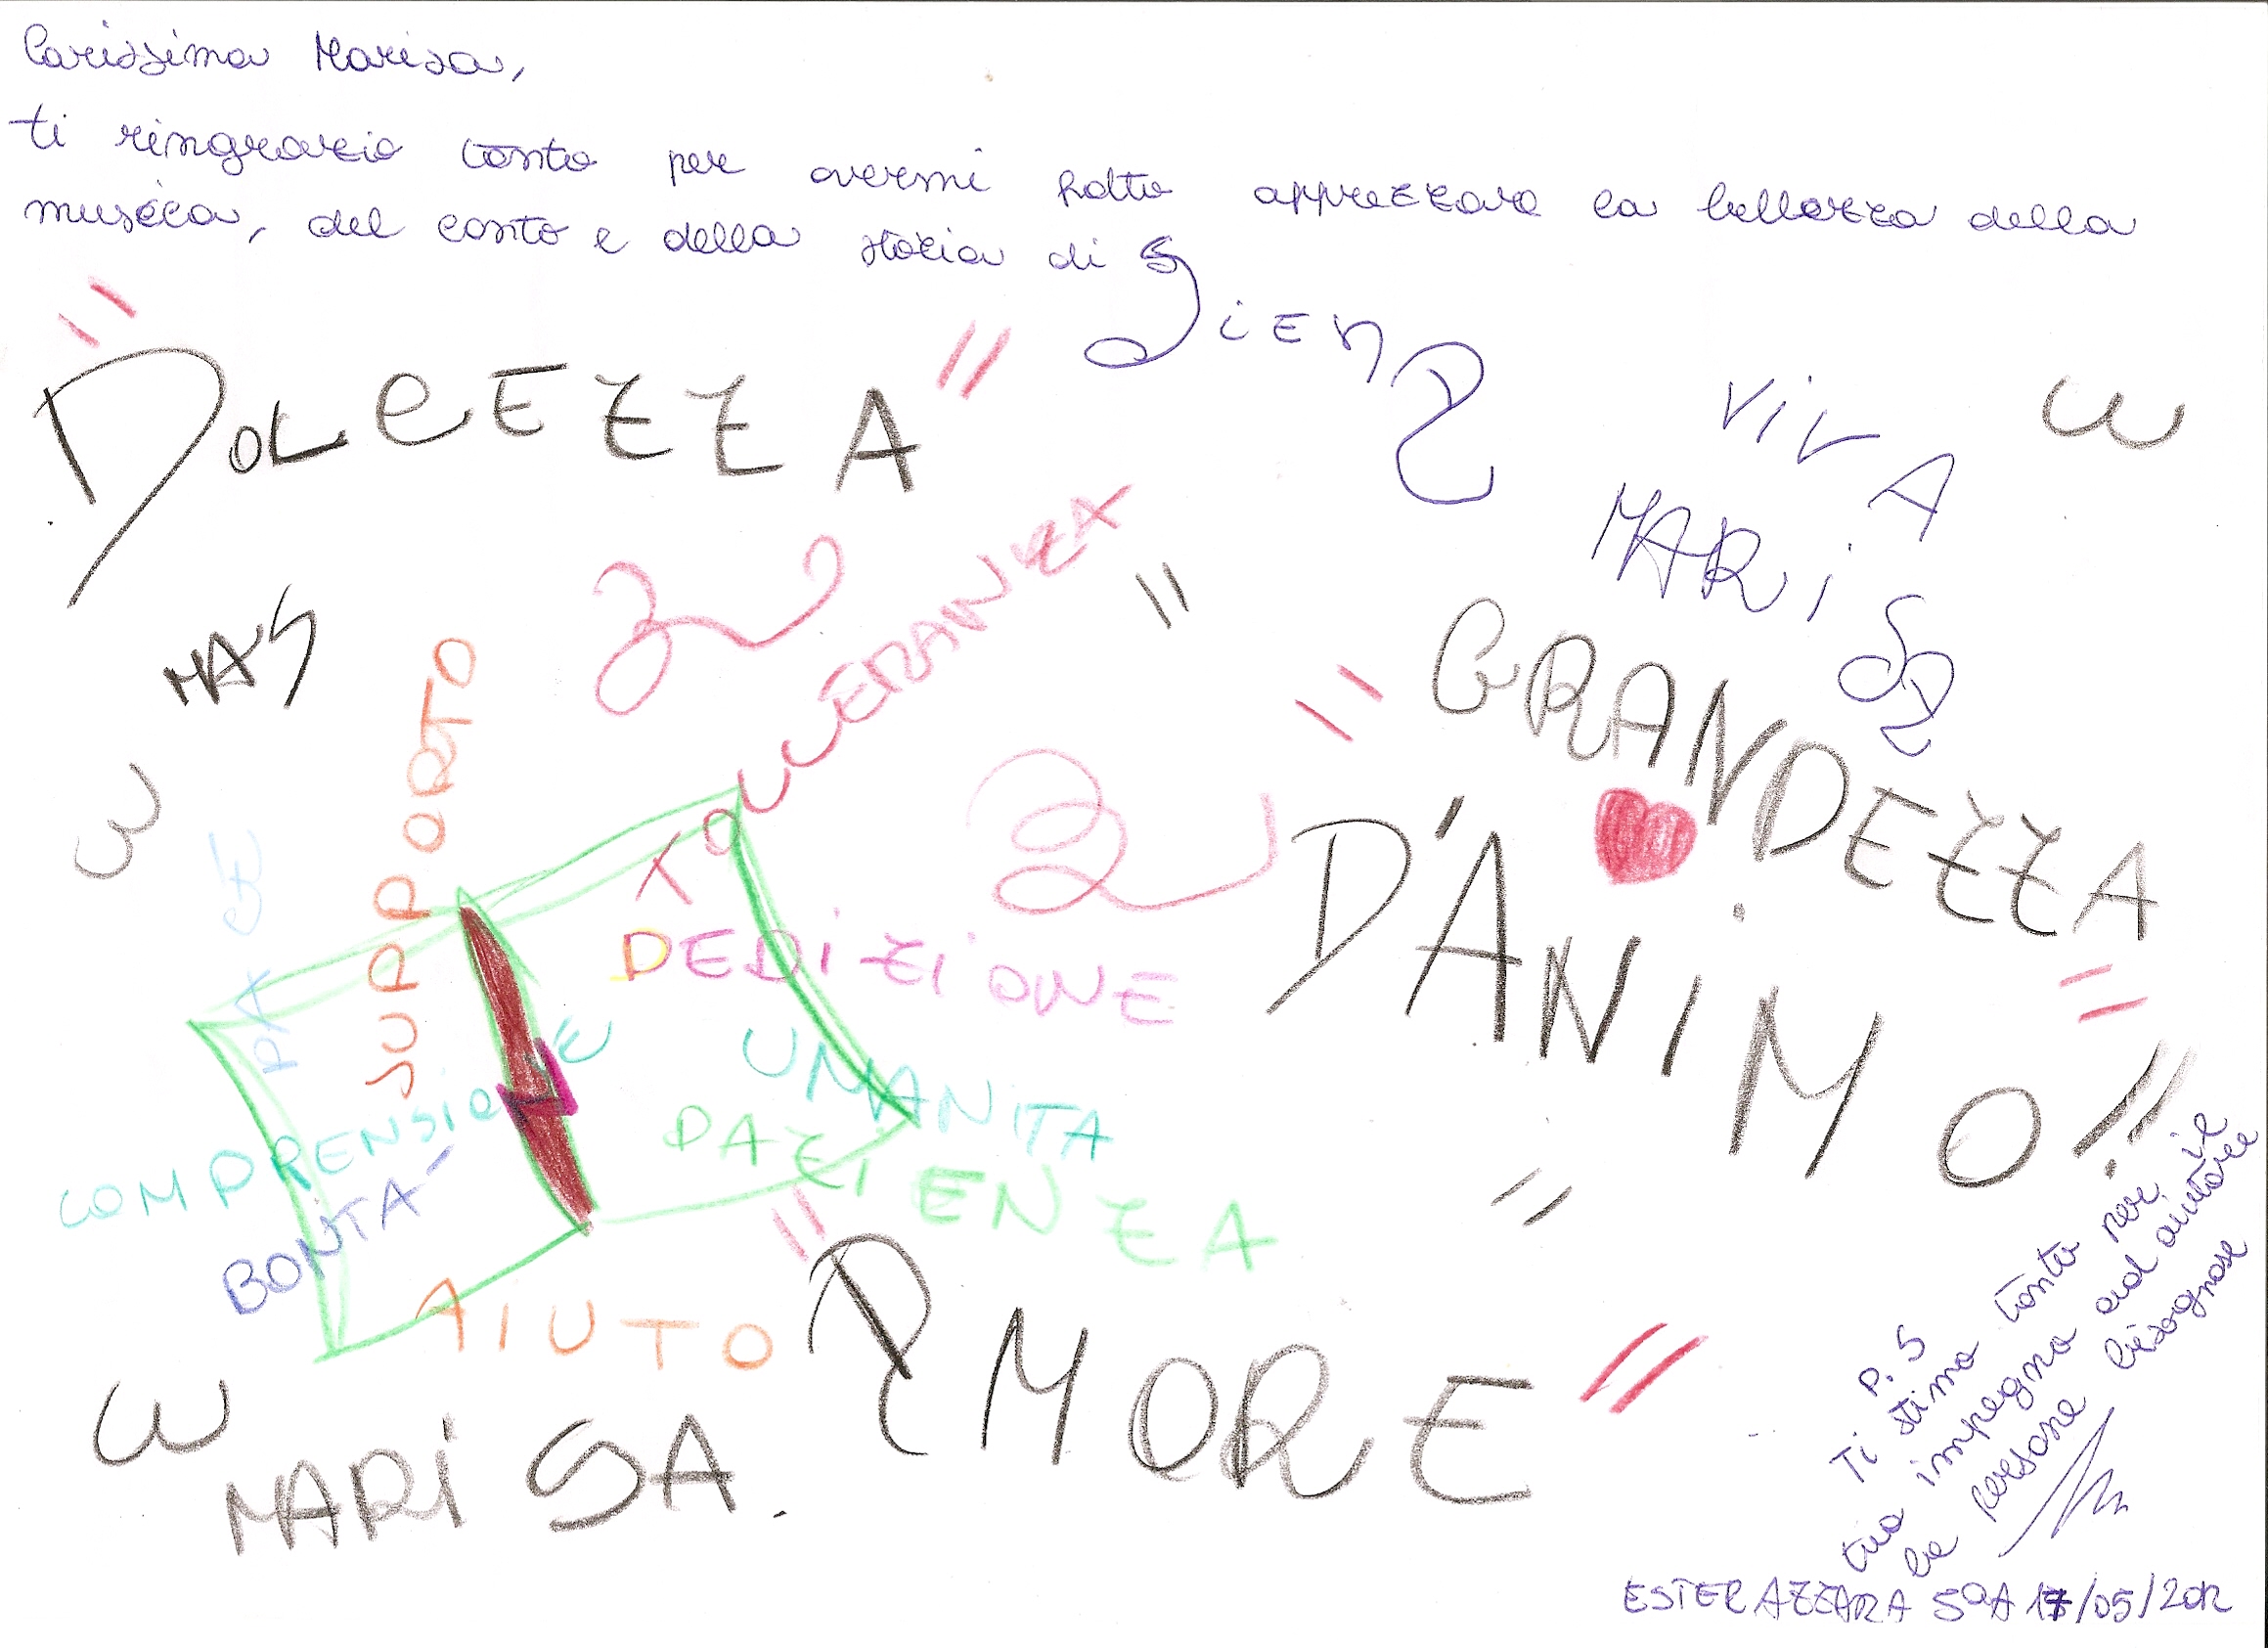 Carissima Marisa,
ti ringrazio tanto per avermi fatto apprezzare la bellezza della
musica, del canto e della storia di Siena
VIVA W
MARISA
"DOLCEZZA"
"GRANDEZZA
D'ANIMO!"
MAS
W
SUPPORTO
TOLLERANZA
PACE
DEDIZIONE
COMPRENSIONE
UMANITA
PAZIENZA
BONTÁ
AIUTO
"AMORE"
W
MARISA.
P.S
Ti stimo tanto per il
tuo impegno ad aiutare
le persone bisognose
ESTER AZZARA 5ªA 17/05/2012